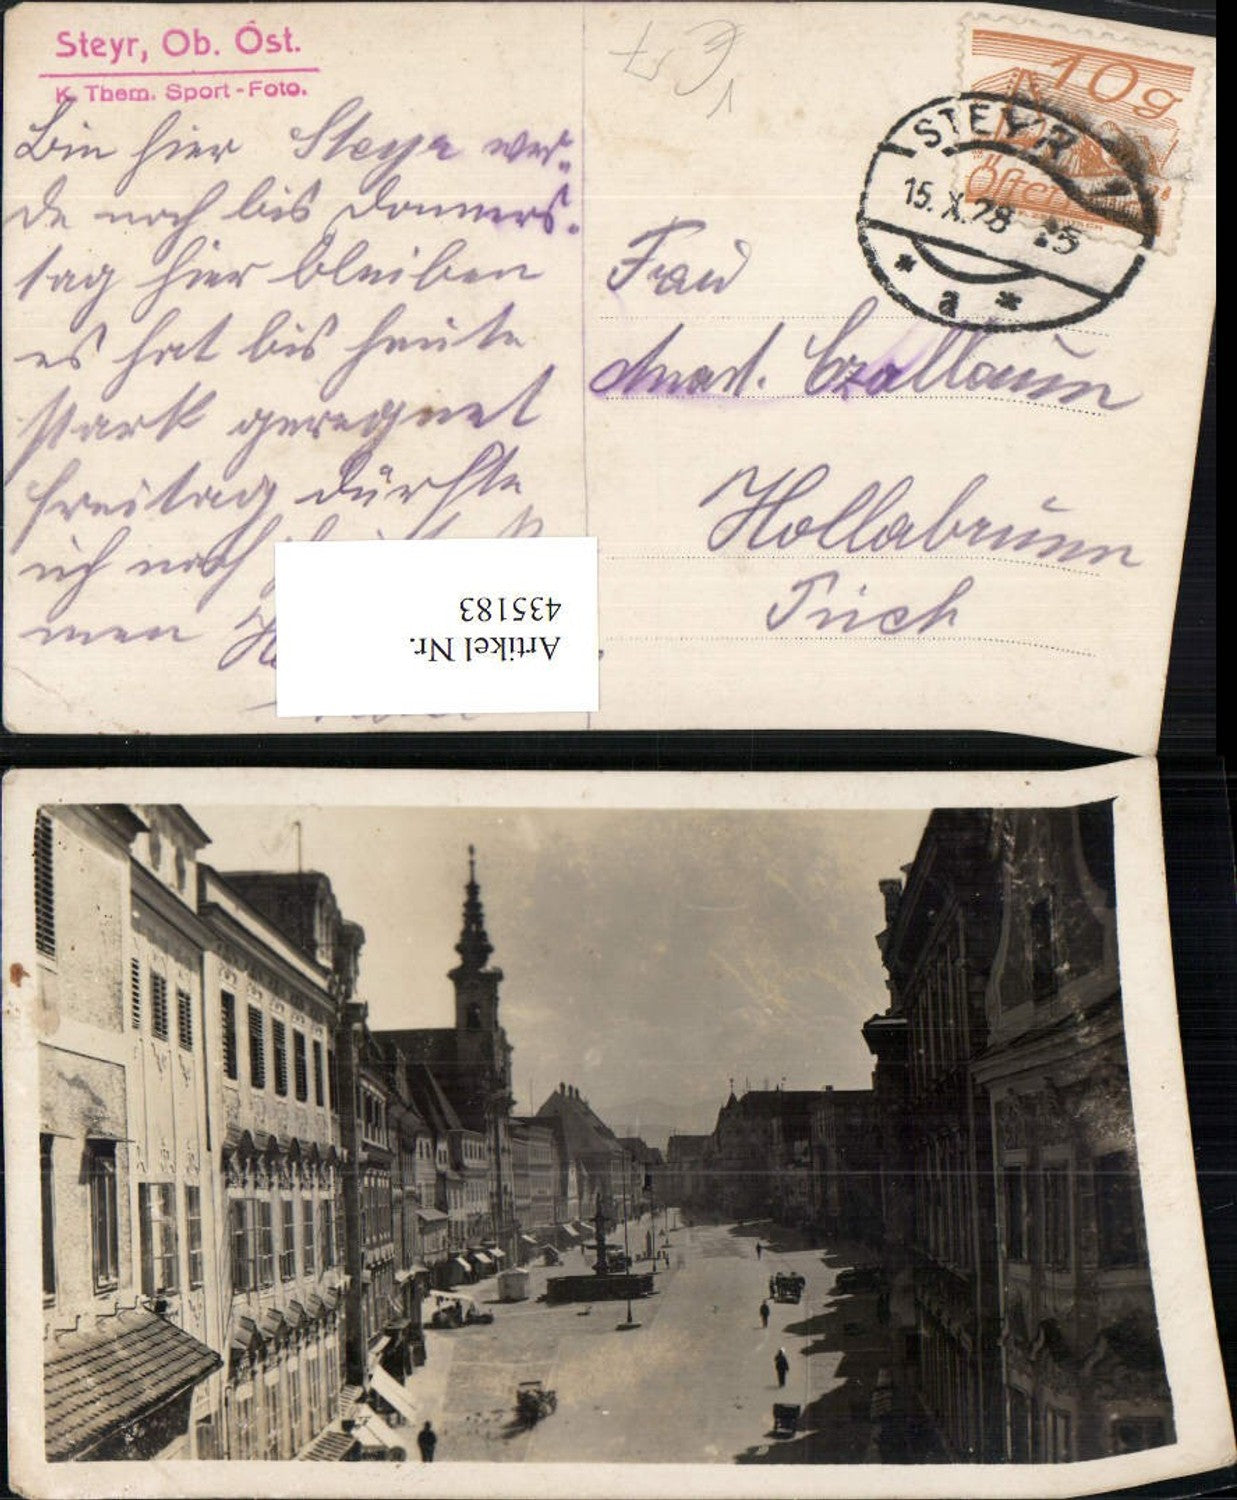 Steyr, Ob. Öst.
K. Them. Sport-Foto.
Bin hier Steyr wer-
de noch bis Donners-
tag hier bleiben
es hat bis heute
stark geregnet
Freitag dürfte
ich noch
men
10g
Österr
STEYR
15.X.28
* a *
Frau
Hollabrunn
Artikel Nr.
435183